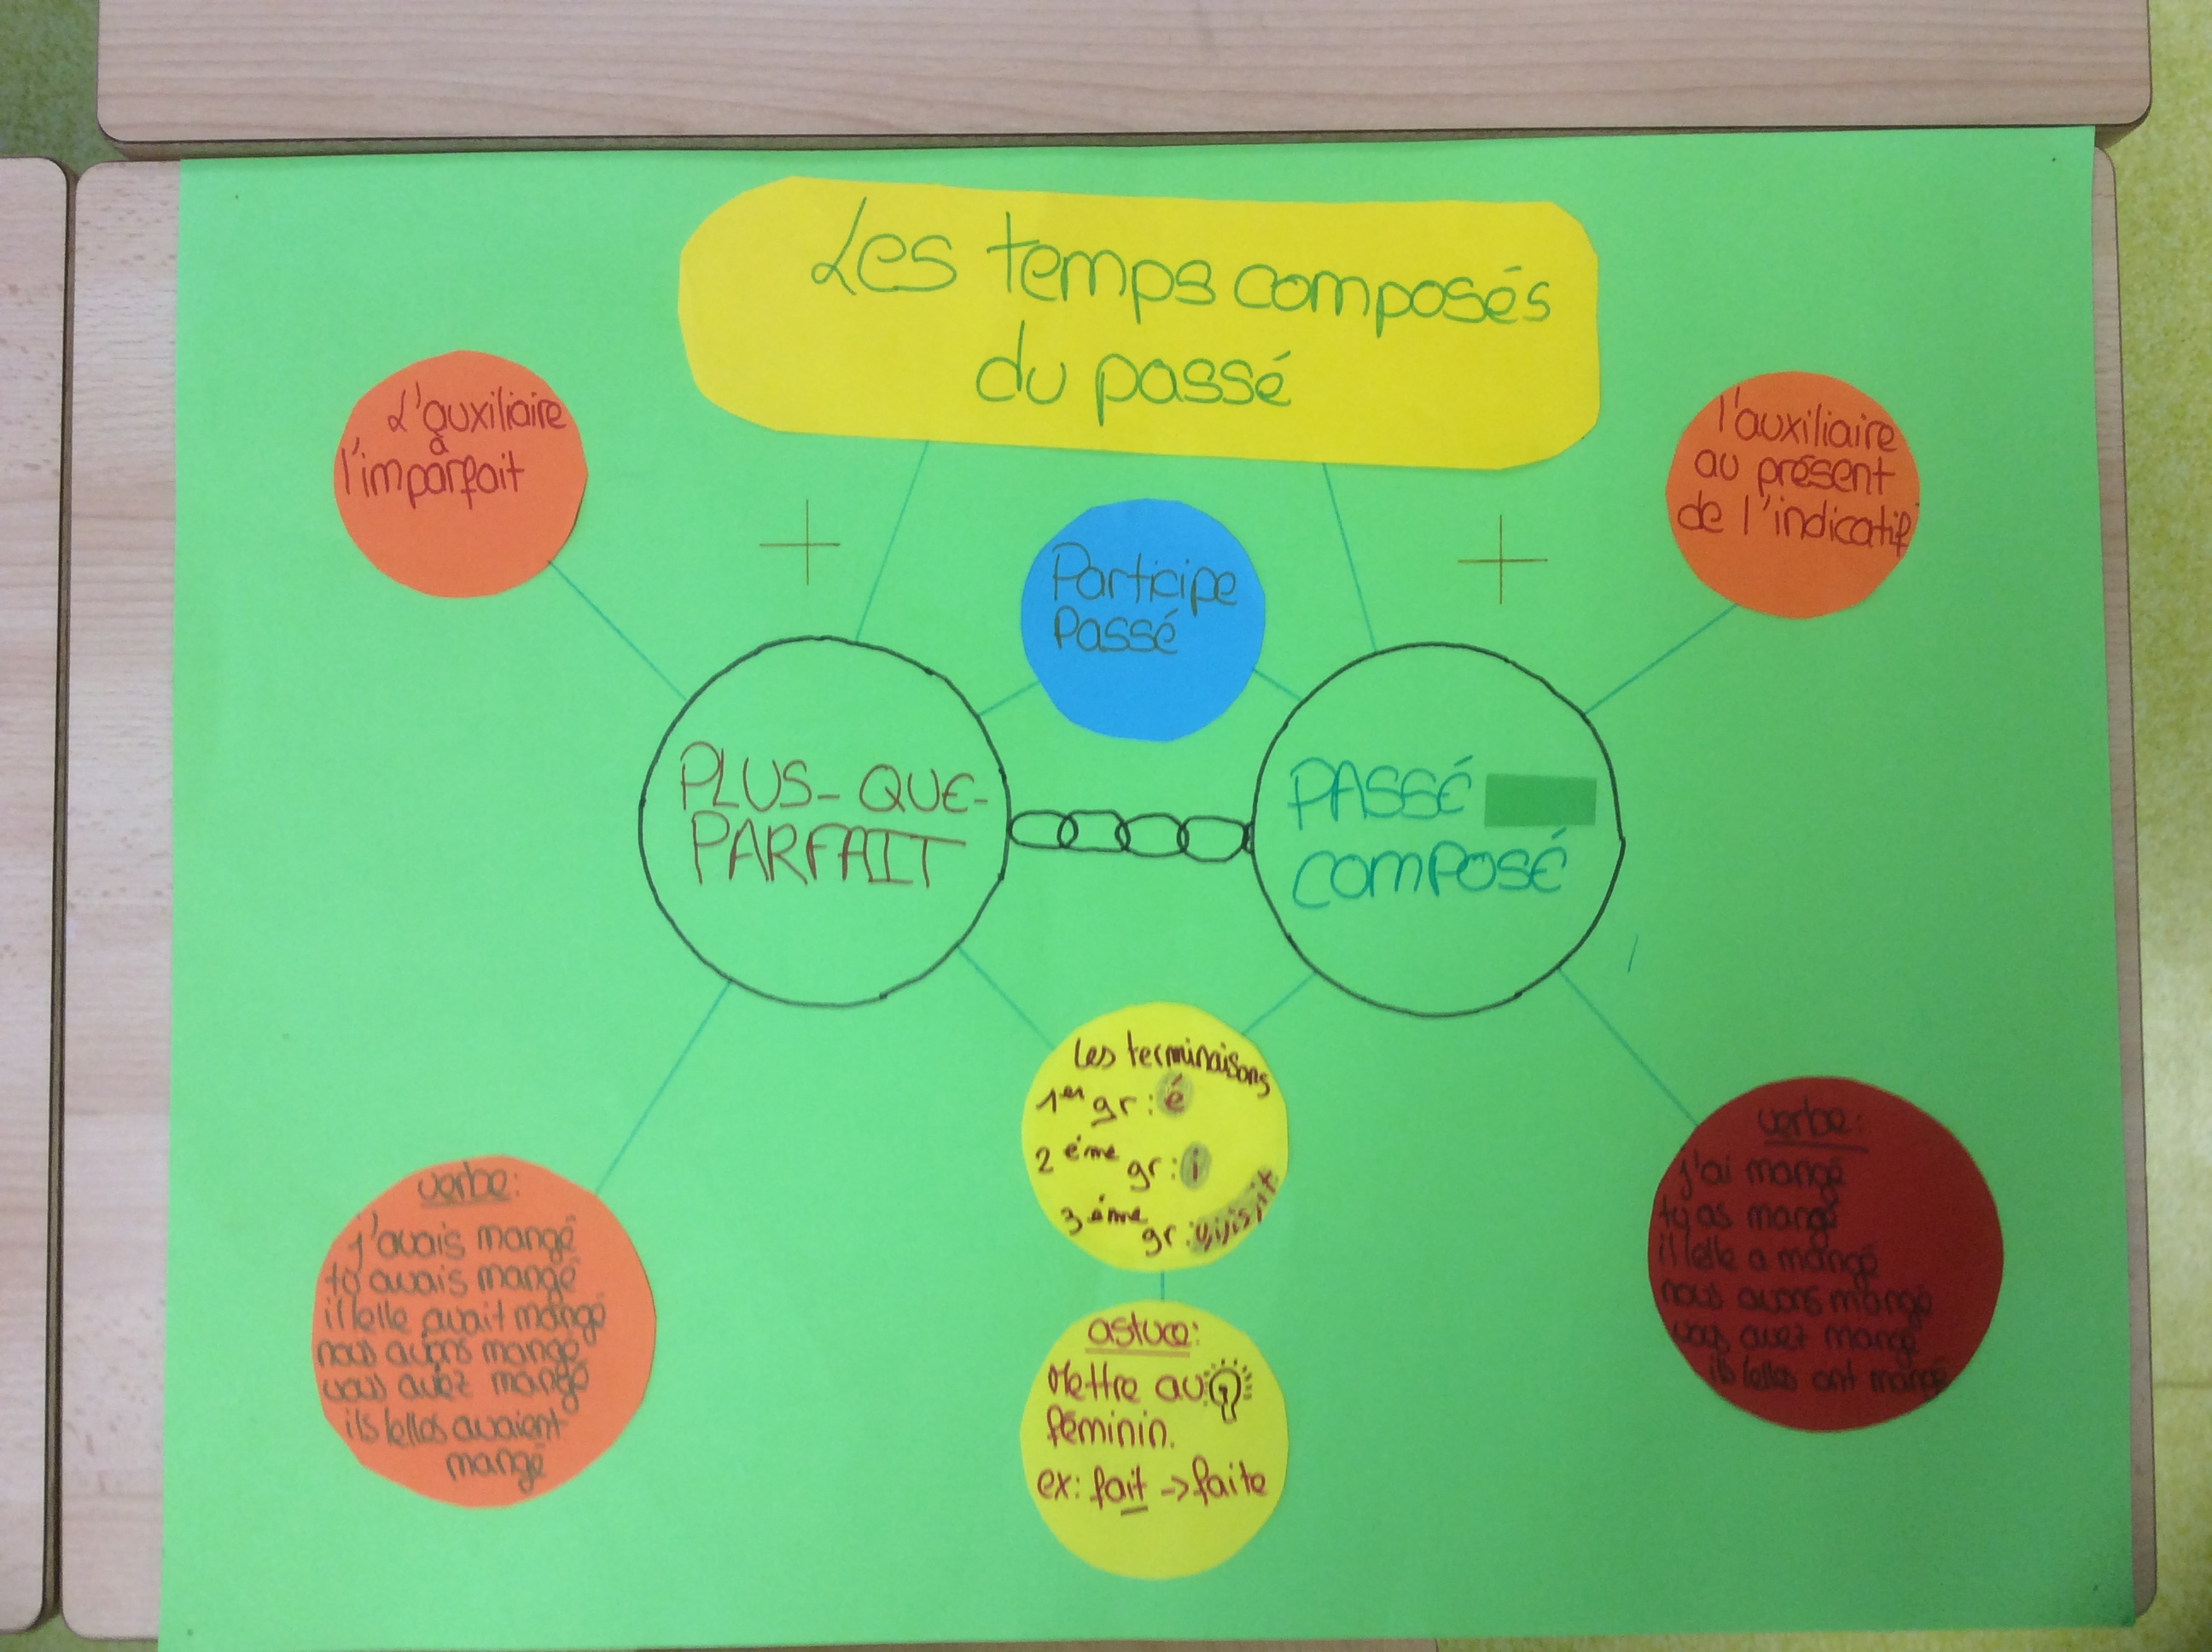 Les temps composés
du passé
L'auxiliaire
à
l'imparfait
l'auxiliaire
au présent
de l'indicatif
Participe
Passé
PLUS-QUE-
PARFAIT
PASSÉ
COMPOSÉ
Les terminaisons
1er gr : é
2 ème gr : i
3 ème gr : u,i,is,it
astuce:
Mettre au
féminin.
ex: fait -> faite
verbe:
j'avais mangé
tu avais mangé
il/elle avait mangé
nous avions mangé
vous aviez mangé
ils/elles avaient
mangé
verbe:
j'ai mangé
tu as mangé
il/elle a mangé
nous avons mangé
vous avez mangé
ils/elles ont mangé